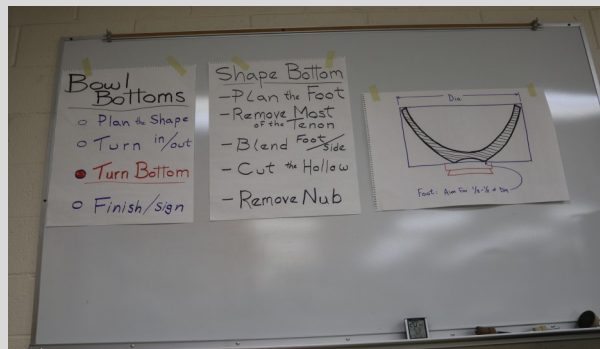 Bowl
Bottoms
Plan the Shape
Turn in/out
Turn Bottom
Finish/sign
Shape Bottom
- Plan the Foot
- Remove Most
of the Tenon
- Blend Foot/Side
- Cut the Hollow
- Remove Nub
Dia
Foot: Aim For